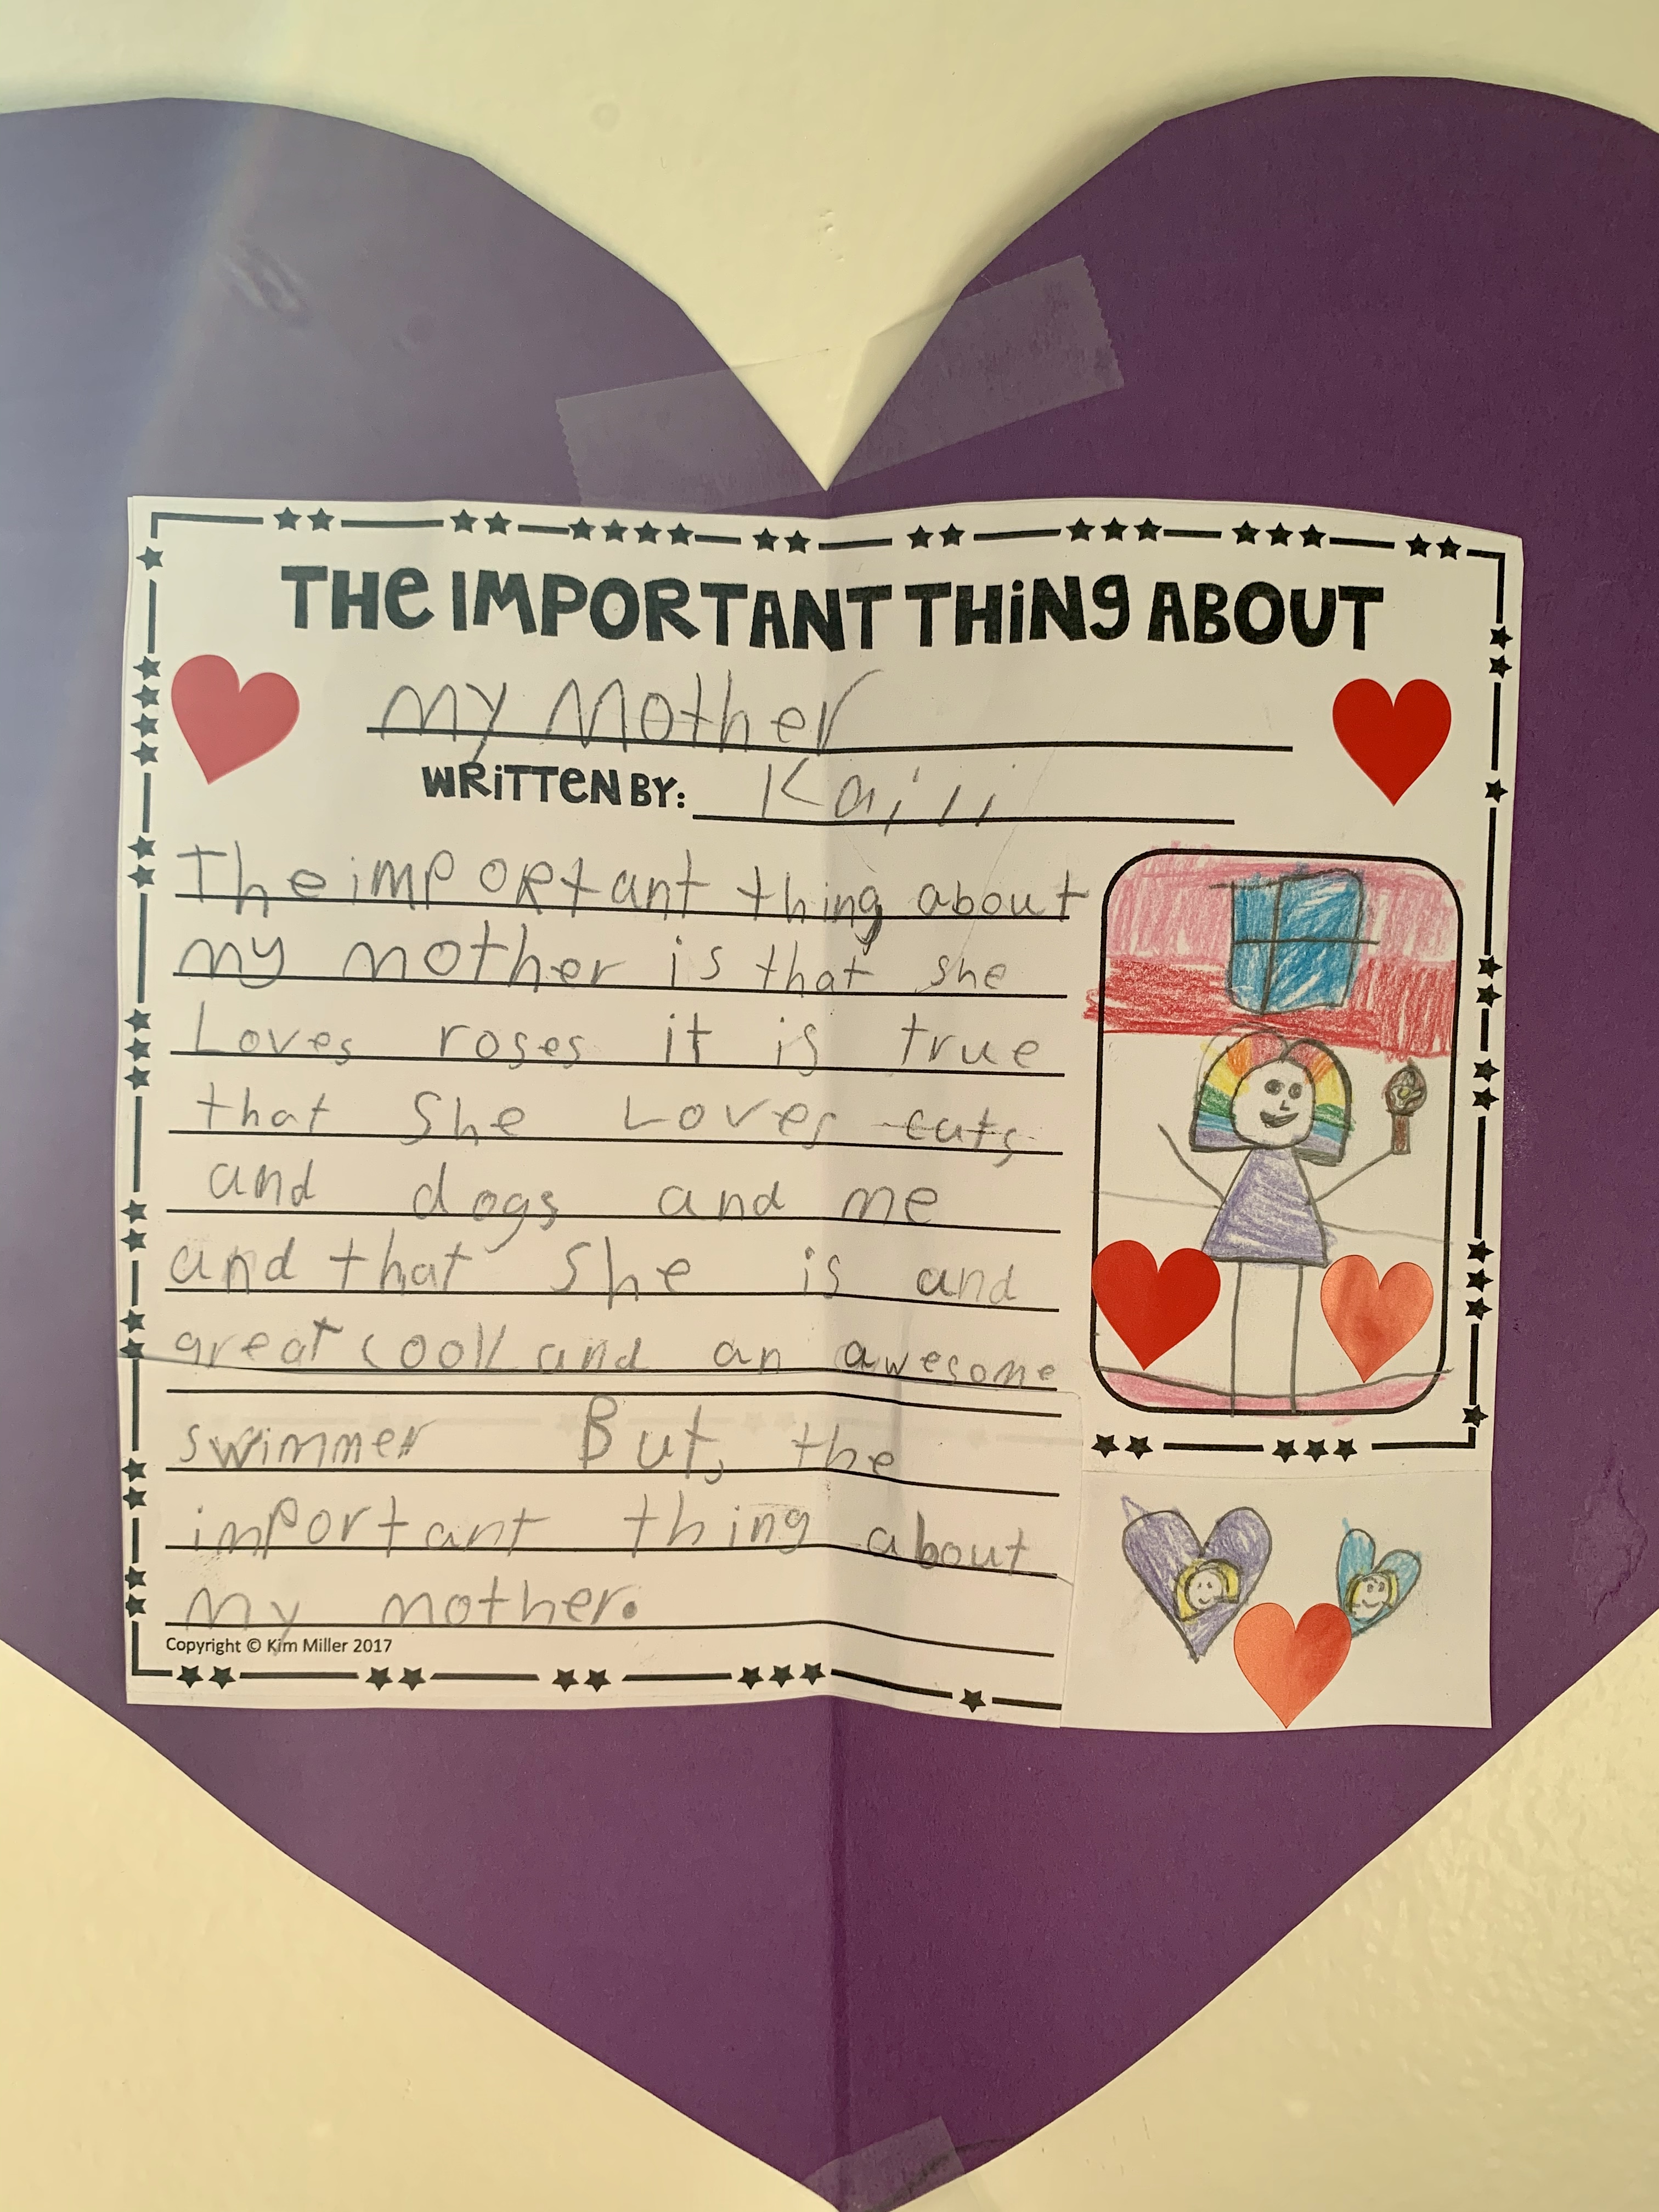 THE IMPORTANT THING ABOUT
My Mother
WRITTEN BY: Kaili
The important thing about
my mother is that she
Loves roses it is true
that She Loves cats
and dogs and me
and that She is and
great cook and an awesome
swimmer But, the
important thing about
my mother.
Copyright © Kim Miller 2017